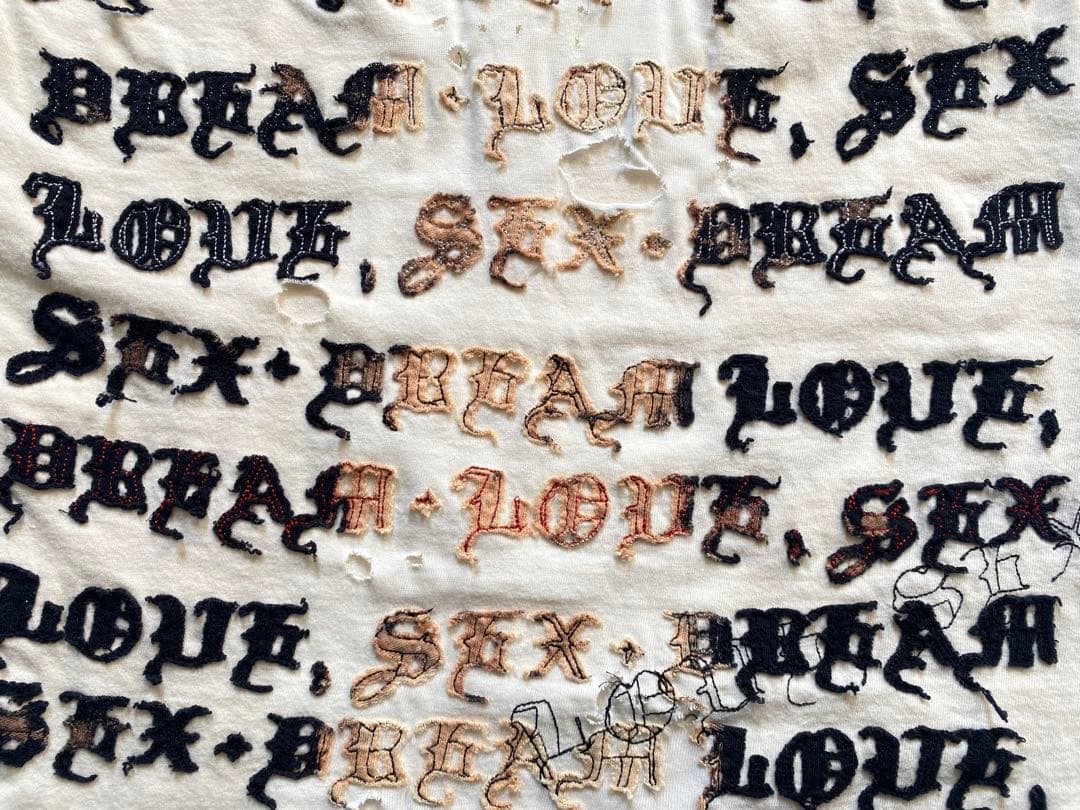 DREAM · LOVE, SEX
LOVE, SEX · DREAM
SEX · DREAM LOVE,
DREAM · LOVE, SEX
LOVE, SEX · DREAM
SEX · DREAM LOVE,